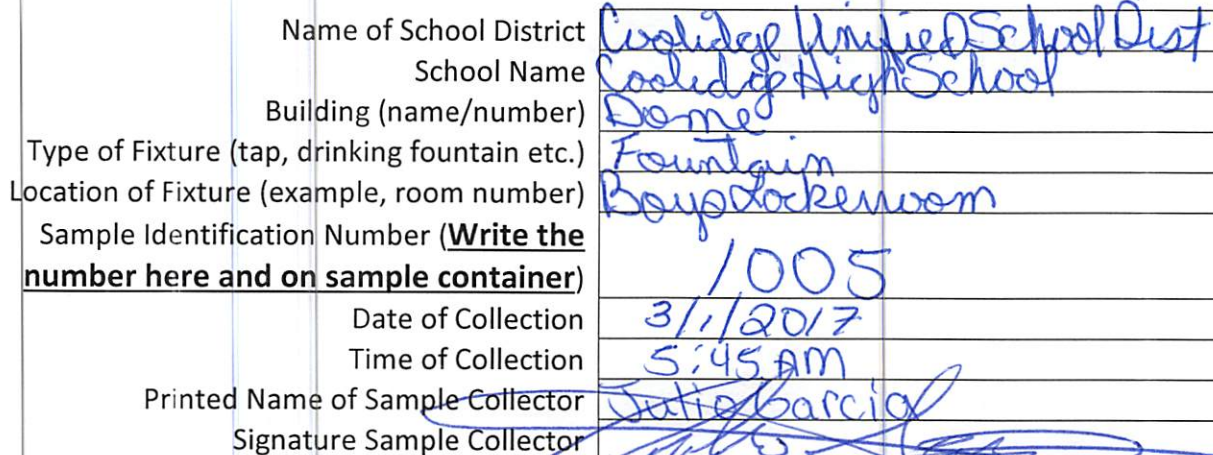 Name of School District Coolidge Unified School Dist
School Name Coolidge High School
Building (name/number) Dome
Type of Fixture (tap, drinking fountain etc.) Fountain
Location of Fixture (example, room number) Boys Lockerroom
Sample Identification Number (Write the
number here and on sample container) 1005
Date of Collection 3/1/2017
Time of Collection 5:45 AM
Printed Name of Sample Collector Julio Garcia
Signature Sample Collector